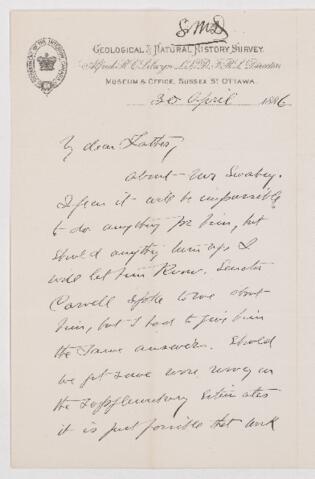 G.M.D.
GEOLOGICAL & NATURAL HISTORY SURVEY.
Alfred R. C. Selwyn, L.L.D., F.R.S. Director
MUSEUM & OFFICE, SUSSEX ST. OTTAWA.
30 April 1886
My dear Father,
about Mr Swabey.
I fear it will be impossible
to do anything for him, but
should anything turn up I
will let him know. Senator
Carvell spoke to me about
him, but I had to give him
the same answer. Should
we get some more money in
the Supplementary Estimates
it is just possible that work